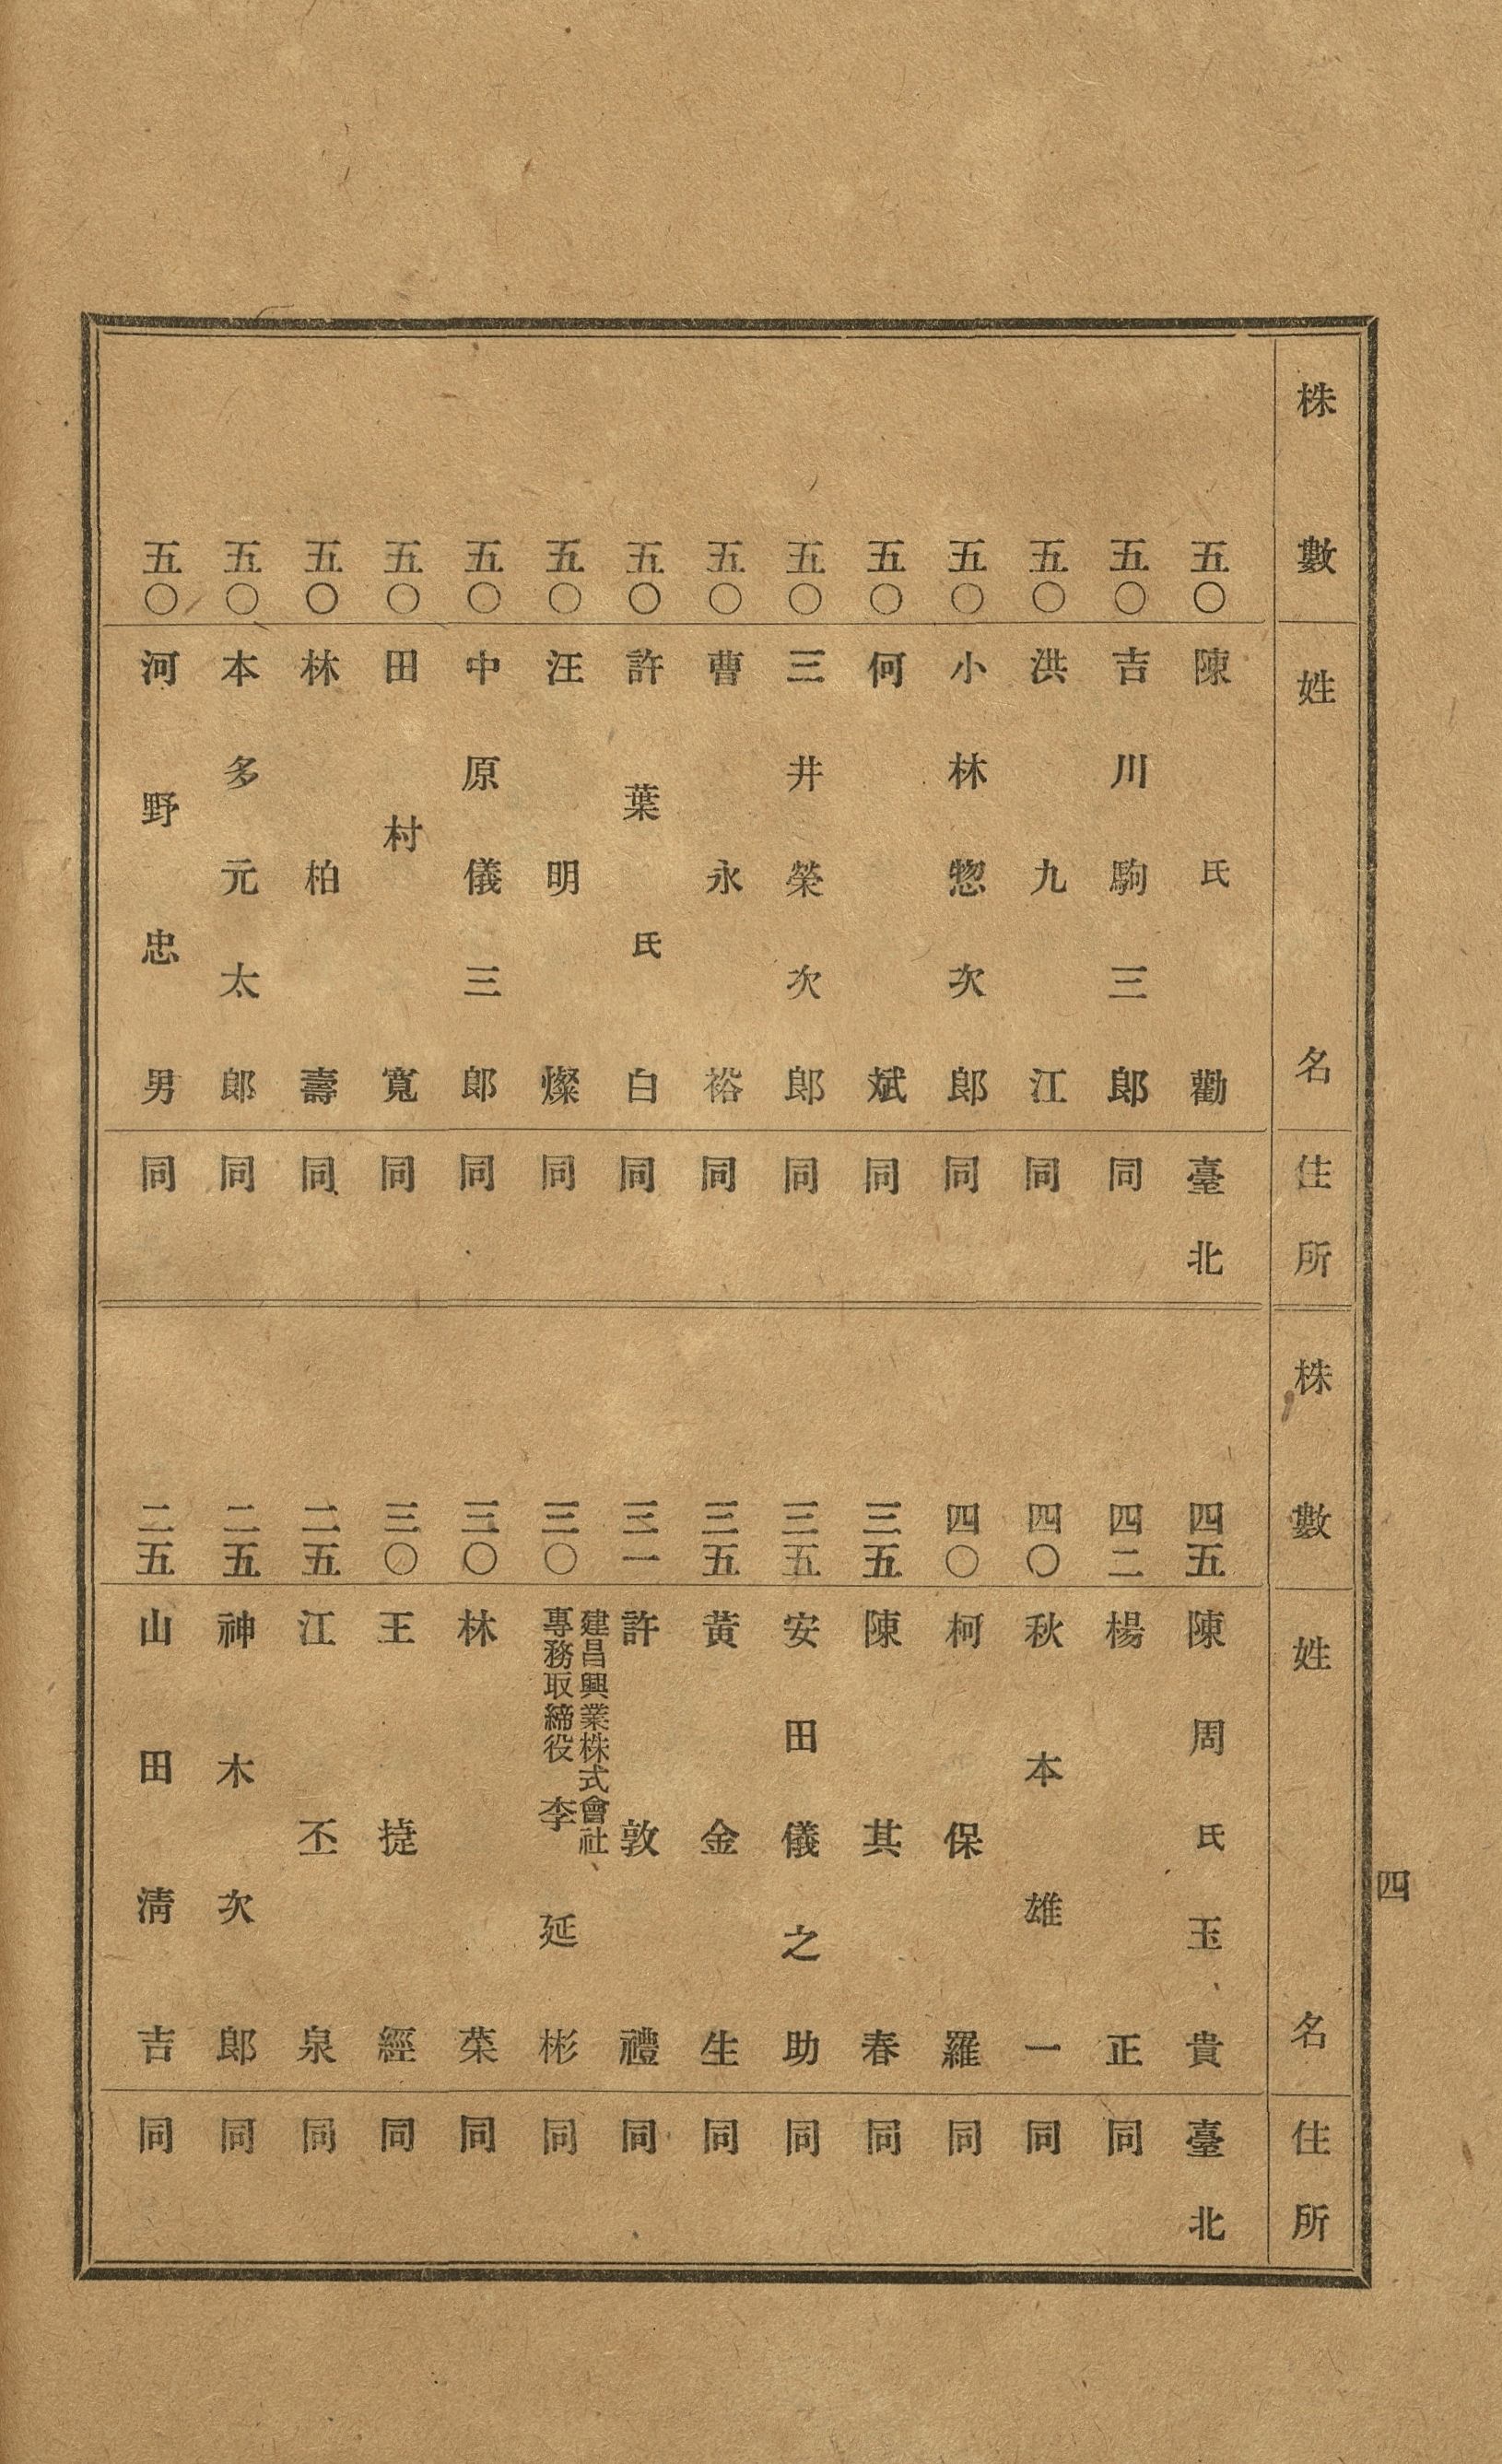 四
株數 姓名 住所
五〇 陳氏勸 臺北
五〇 吉川駒三郎 同
五〇 洪九江 同
五〇 小林惣次郎 同
五〇 何斌 同
五〇 三井榮次郎 同
五〇 曹永裕 同
五〇 許葉氏白 同
五〇 汪明燦 同
五〇 中原儀三郎 同
五〇 田村寬 同
五〇 林柏壽 同
五〇 本多元太郎 同
五〇 河野忠男 同
株數 姓名 住所
四五 陳周氏玉貴 臺北
四二 楊正 同
四〇 秋本雄一 同
四〇 柯保羅 同
三五 陳其春 同
三五 安田儀之助 同
三五 黃金生 同
三一 許敦禮 同
三〇 建昌興業株式會社
專務取締役 李延彬 同
三〇 林榮 同
三〇 王㨗經 同
二五 江丕泉 同
二五 神木次郎 同
二五 山田淸吉 同